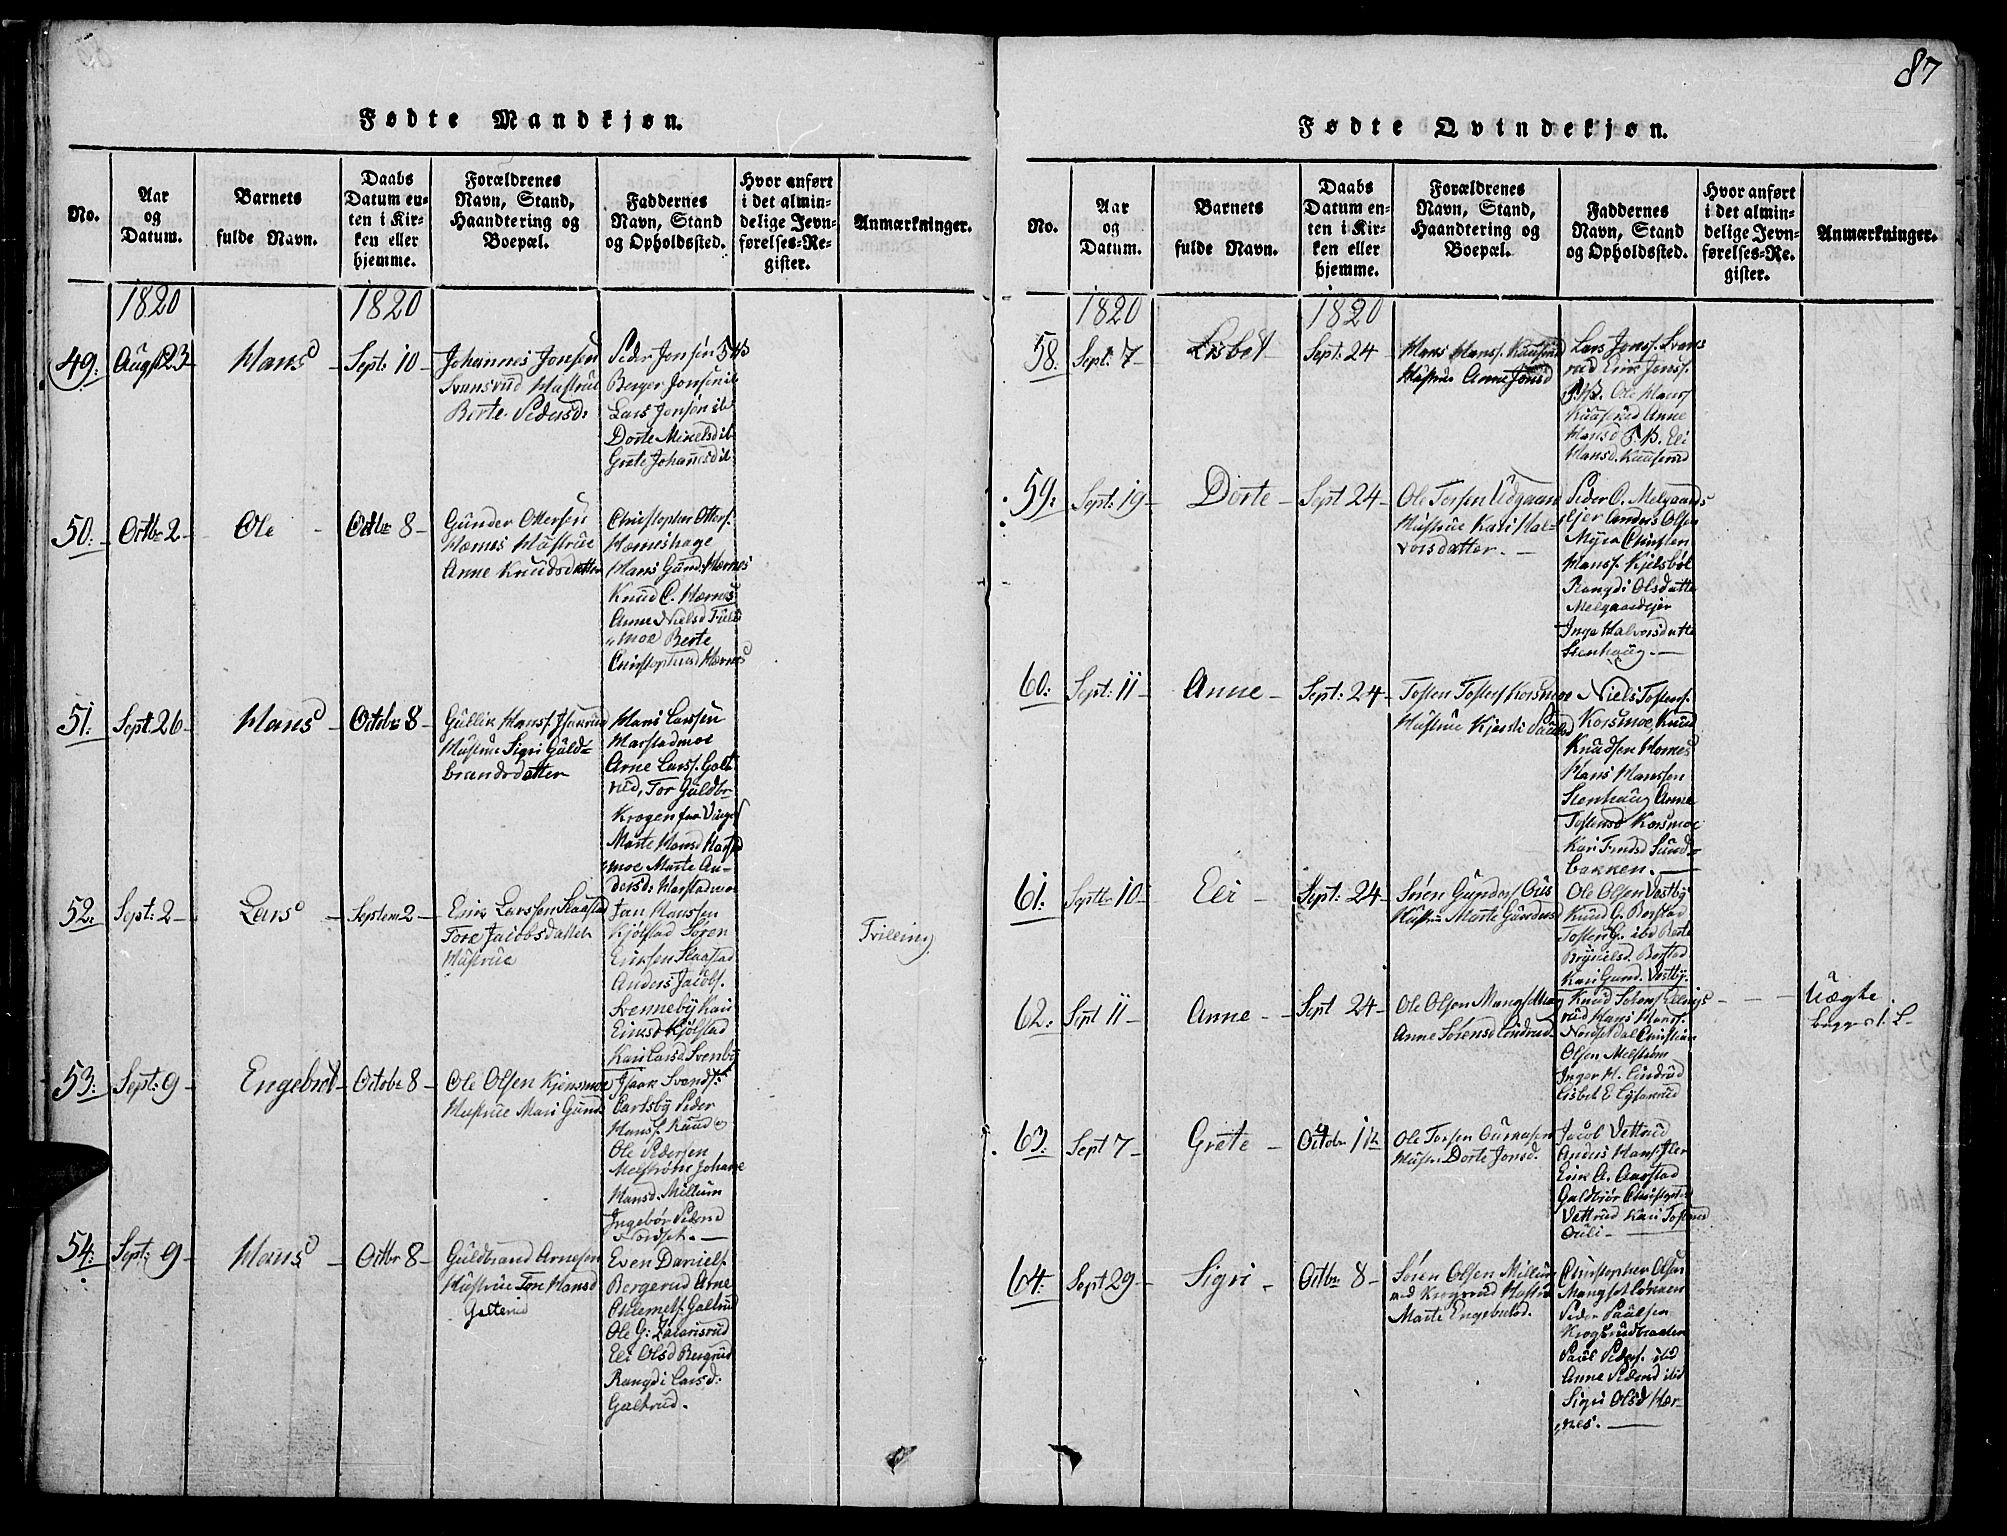 87
Fødte Mandkjøn.
No.
Aar og Datum.
Barnets fulde Navn.
Daabs Datum enten i Kirken eller hjemme.
Forældrenes Navn, Stand, Haandtering og Boepæl.
Faddernes Navn, Stand og Opholdssted.
Hvor anført i det almindelige Jevnførelses-Register.
Anmærkninger.
1820
1820
49. Aug 23 Hans Sept: 10
Johannes Jonsen
Svensrud Hustrue
Berte Pedersd:
Peder Jonsen
Berger Jonsen ib
Lars Jonsen ib
Dorte Mikelsd ib
Grete Johannesd ib
50. Octbr 2 Ole Octbr 8
Gunder Ottersen
Hornes Hustrue
Anne Knudsdatter
Christopher Otters.
Horneshage
Hans Gund: Hornes
Knud C. Hornes
Anne Nielsd
moe Berte
Christophersd Hornes
51. Sept: 26 Hans Octobr 8
Gullik Hanss.
Hustrue Sigri Guld=
brandsdatter
Hans Larssen
Harstadmoe
Arne Larss. Galt
rud, Tor Guldbr
Krogen fra Vinger
Marte Hansd Harstad
moe Marte An=
dersd: Harstadmoe
52. Sept: 2 Lars Septem 2
Erik Larssen Skaastad
Tore Jacobsdatter
Hustrue
Jan Hanssen
Kjølstad Søren
Eriksen Skaastad
Anders Jacobs.
Svenneby Kari
Eriksd Kjølstad
Kari Larsd Svenneby
Trilling
53. Sept: 9 Engebret Octobr 8
Ole Olsen Kjensmoe
Hustrue Mari Gund
Isaak Svends:
Carlsby Peder
Hanss. Ruud
Ole Pedersen
Melstrøm Johane
Hansd. Millum
Ingebør Pedersd
Nordset.
54. Sept: 9 Hans Octbr 8
Guldbrand Arnesen
Hustrue Tore Hansd
Galterud
Even Daniels.
Bergerud Arne
Clemets. Galtrud
Ole G: Zacarisrud
Eli Olsd Bergrud
Rangdi Larsd:
Galtrud.
Fødte Qvindekjøn.
No.
Aar og Datum.
Barnets fulde Navn.
Daabs Datum enten i Kirken eller hjemme.
Forældrenes Navn, Stand, Haandtering og Boepæl.
Faddernes Navn, Stand og Opholdssted.
Hvor anført i det almindelige Jevnførelses-Register.
Anmærkninger.
1820
1820
58. Sept: 7 Lisbet Sept: 24
Hans Hanss. Kausrud
Hustrue Anne Jonsd
Lars Jonss. Svens
rud Erik Jonss.
Ole Hanss
Kausrud Anne
Hansd Eli
Hansd. Kausrud
59. Sept: 19 Dorte Sept 24
Ole Torsen
Hustrue Kari Hal=
vorsdatter.
Peder O. Melgaards
ejer Anders Olsen
Myra Christen
Hanss. Kjelsbøl
Rangdi Olsdatte
Melgaardejer
Inge Halvorsdatte
Stenhaug.
60. Sept: 11 Anne Sept: 24
Tosten Tostens Korsmoe
Hustrue Kjersti Paulsd
Niels Tostens.
Korsmoe, Knud
Knudsen Hornes
Hans Hanssen
Stenhaug Anne
Tostensd Korsmoe
Kari Sund=
bakken.
61. Septbr 10 Eli Sept: 24
Søren Gunders
Hustrue Marte Gundersd
Ole Olsen Vestby
Knud G. Borstad
Tosten G. ibd Berte
Brynelsd. Borstad
Kari Gund. Vestby.
62. Sept 11 Anne Sept 24
Ole Olsen
Anne Sørensd Lindrud
Knud
rud Hans Hans.
Nordsetdal Christian
Olsen Melstrøm
Inger H. Lindrud
Lisbet E
Uægte
63. Sept 7 Grete Octobr 1
Ole Torsen
Dorte Jonsd.
Jacob Vettrud
Anders Hans.
Erik A. Aarstad
Guldbrør
Vettrud Kari Tostensd
Ouli
64. Sept 29 Sigri Octbr 8
Søren Olsen Millum
Krogsrud Hustrue
Marte Engebretsd.
Christopher Olsen
Peder Paulsen
Krogsrudbraaten
Paul Peders. ibd
Anne Pedersd ibd
Sigri Olsd Hor=
nes.